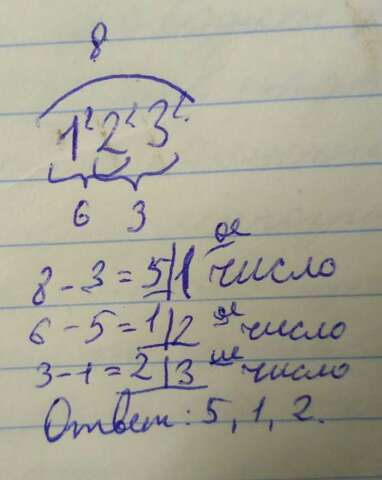 8
1² 2² 3².
6 3
8-3=5|1 ое число
6-5=1|2 ое число
3-1=2|3 ие число
Ответ: 5, 1, 2.